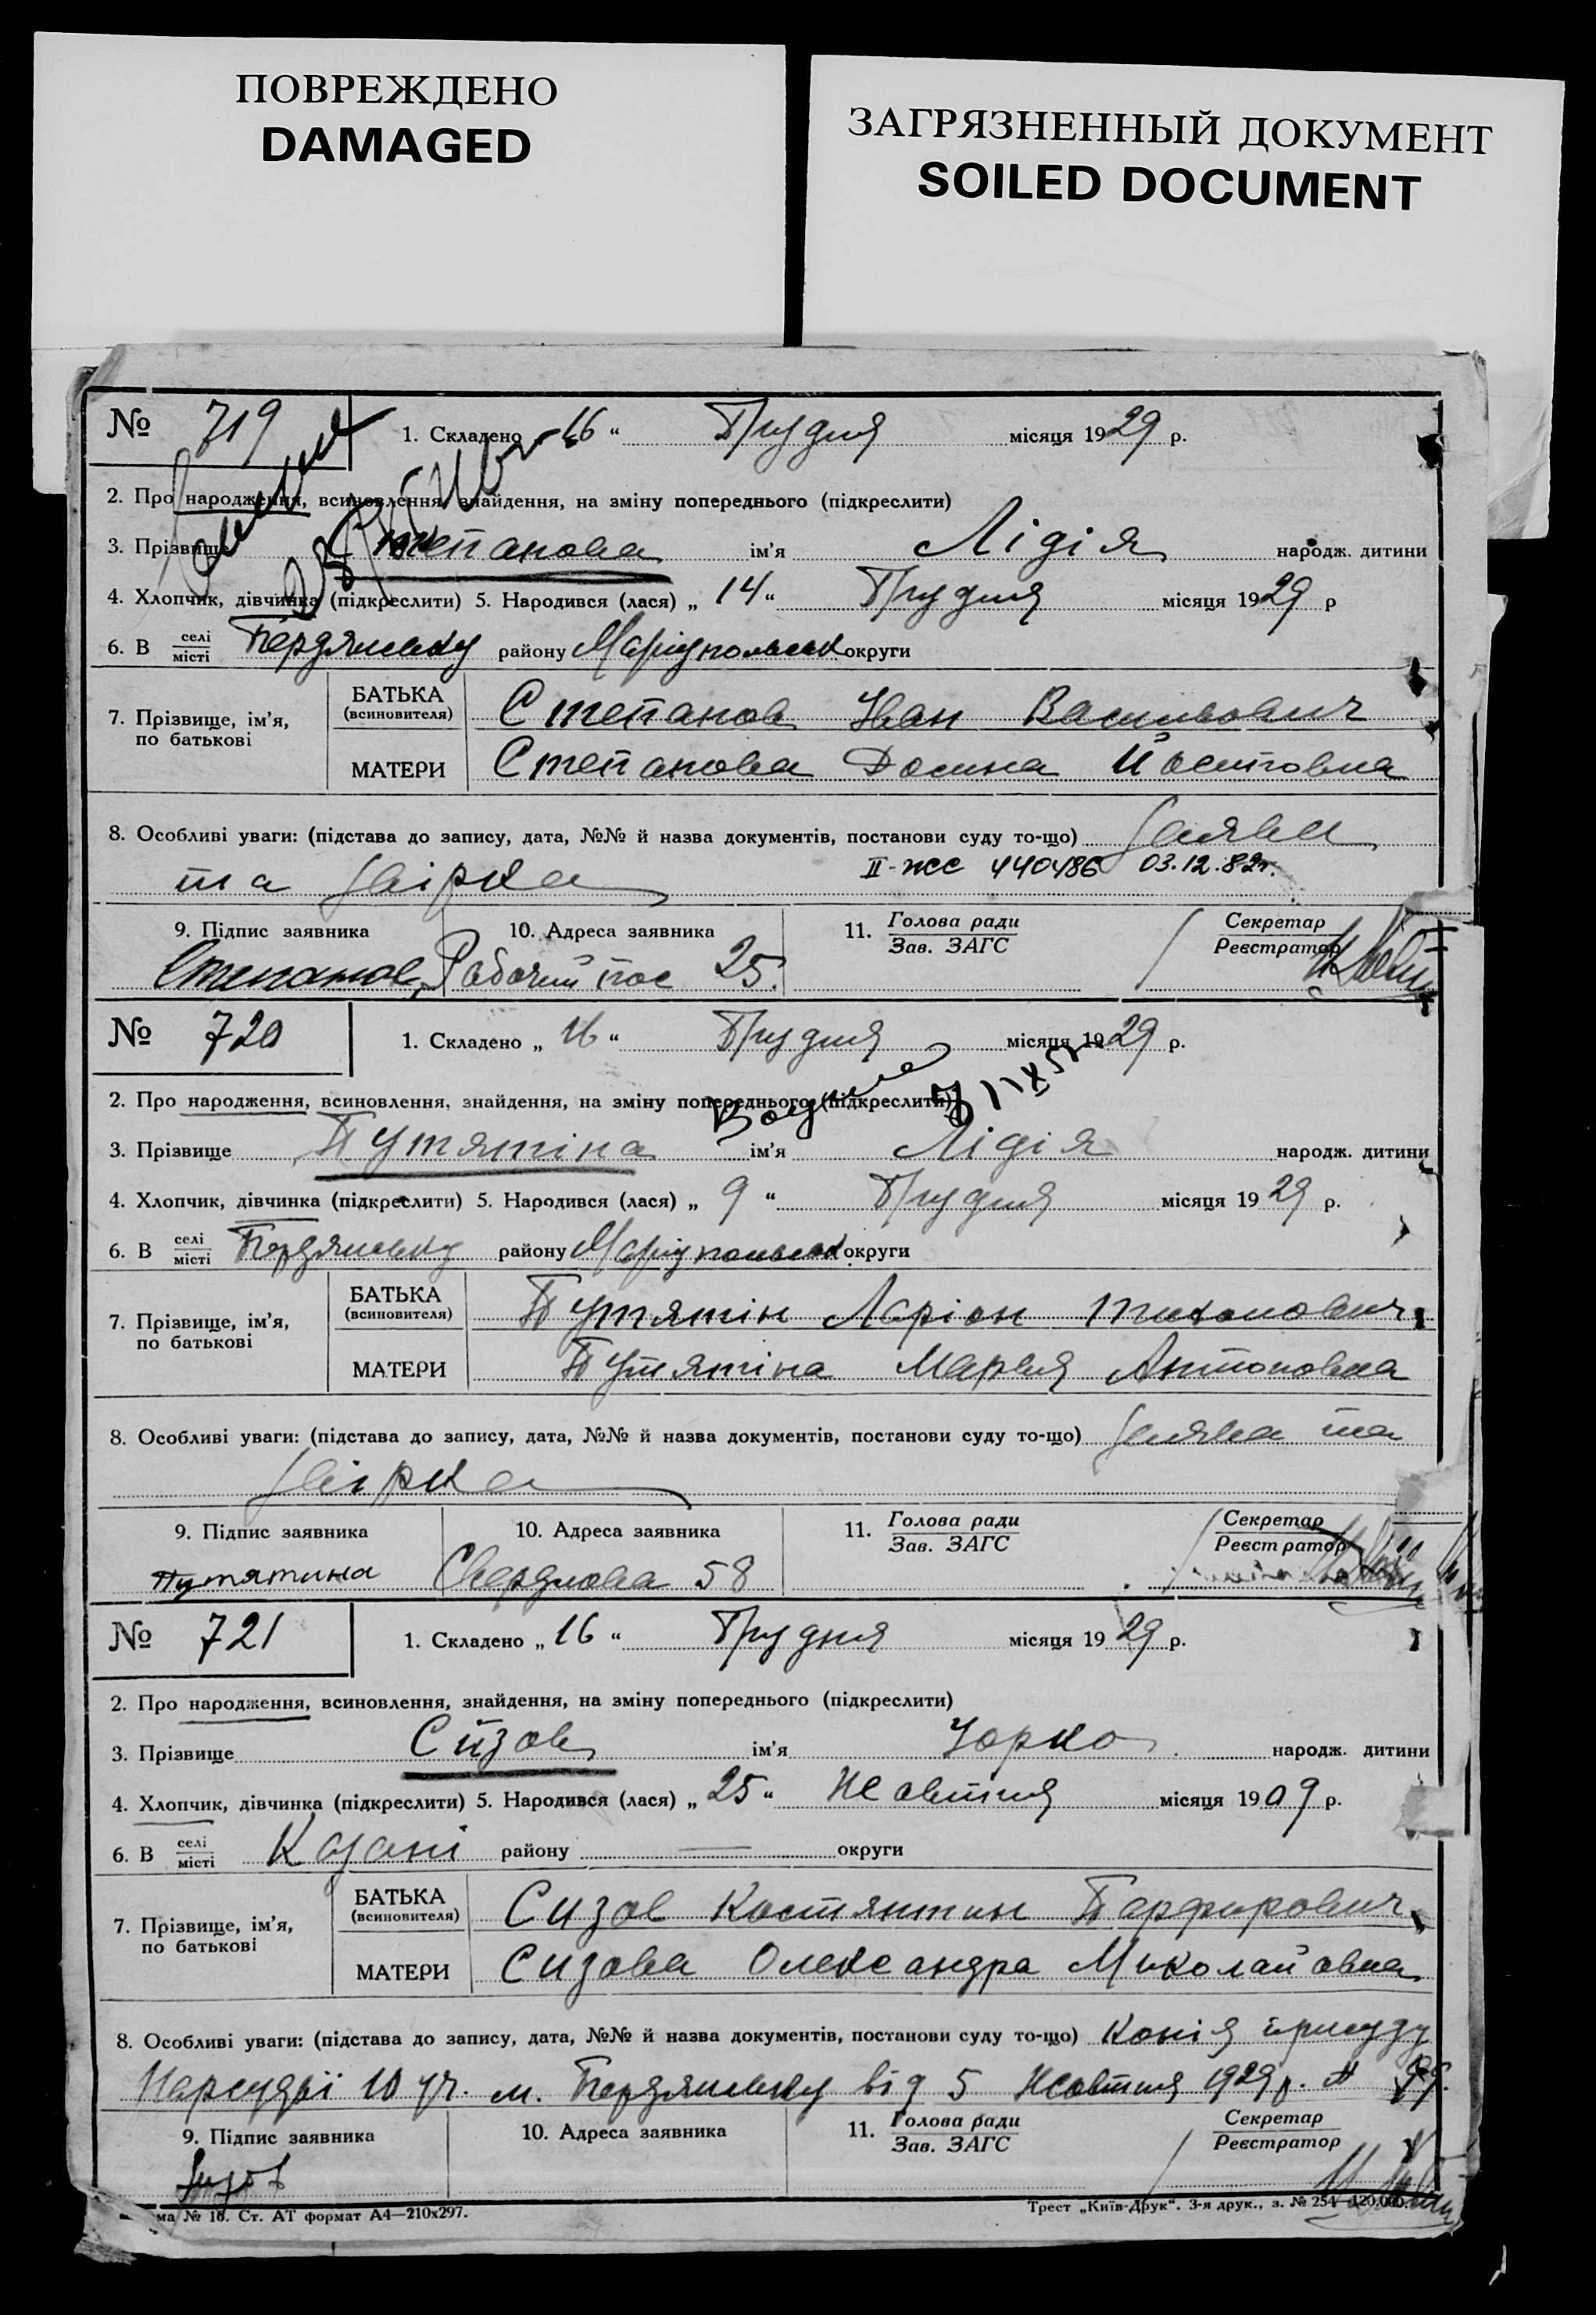 ПОВРЕЖДЕНО
DAMAGED
ЗАГРЯЗНЕННЫЙ ДОКУМЕНТ
SOILED DOCUMENT
№ 719 1. Складено „ 16 “ Грудня місяця 1929 р.
2. Про народження, всиновлення, знайдення, на зміну попереднього (підкреслити)
3. Прізвище Степанова ім’я Лідія народж. дитини
4. Хлопчик, дівчинка (підкреслити) 5. Народився (лася) „ 14 “ Грудня місяця 1929 р
6. В селі місті Бердянську району Маріупольськ округи
7. Прізвище, ім’я, по батькові
БАТЬКА (всиновителя) Степанов Іван Васильович
МАТЕРИ Степанова Йосиповна
8. Особливі уваги: (підстава до запису, дата, №№ й назва документів, постанови суду то-що) Заява
та Звірка II-ЖС 440486 03.12.82г.
9. Підпис заявника 10. Адреса заявника 11. Голова ради Зав. ЗАГС Секретар Реєстратор
Степанов Рабочий пос 25.
№ 720 1. Складено „ 16 “ Грудня місяця 1929 р.
2. Про народження, всиновлення, знайдення, на зміну попереднього (підкреслити)
3. Прізвище Путятіна ім’я Лідія народж. дитини
4. Хлопчик, дівчинка (підкреслити) 5. Народився (лася) „ 9 “ Грудня місяця 1929 р.
6. В селі місті Бердянську району Маріупольськ округи
7. Прізвище, ім’я, по батькові
БАТЬКА (всиновителя) Путятін Ларіон Тихонович
МАТЕРИ Путятіна Марья Антоновна
8. Особливі уваги: (підстава до запису, дата, №№ й назва документів, постанови суду то-що) Заява та
Звірка
9. Підпис заявника 10. Адреса заявника 11. Голова ради Зав. ЗАГС Секретар Реєстратор
Путятина Свердлова 58
№ 721 1. Складено „ 16 “ Грудня місяця 1929 р.
2. Про народження, всиновлення, знайдення, на зміну попереднього (підкреслити)
3. Прізвище Сизов ім’я народж. дитини
4. Хлопчик, дівчинка (підкреслити) 5. Народився (лася) „ 25 “ Жовтня місяця 1909 р.
6. В селі місті Казані району — округи
7. Прізвище, ім’я, по батькові
БАТЬКА (всиновителя) Сизов Костянтин Парфирович
МАТЕРИ Сизова Олександра Миколайовна
8. Особливі уваги: (підстава до запису, дата, №№ й назва документів, постанови суду то-що) Копія присуду
Нарсудді 10 уч. м. Бердянську від 5 Жовтня 1929 р.
9. Підпис заявника 10. Адреса заявника 11. Голова ради Зав. ЗАГС Секретар Реєстратор
Сизов
ма № 18. Ст. АТ формат А4—210х297. Трест „Київ-Друк“. 3-я друк., з. № 254